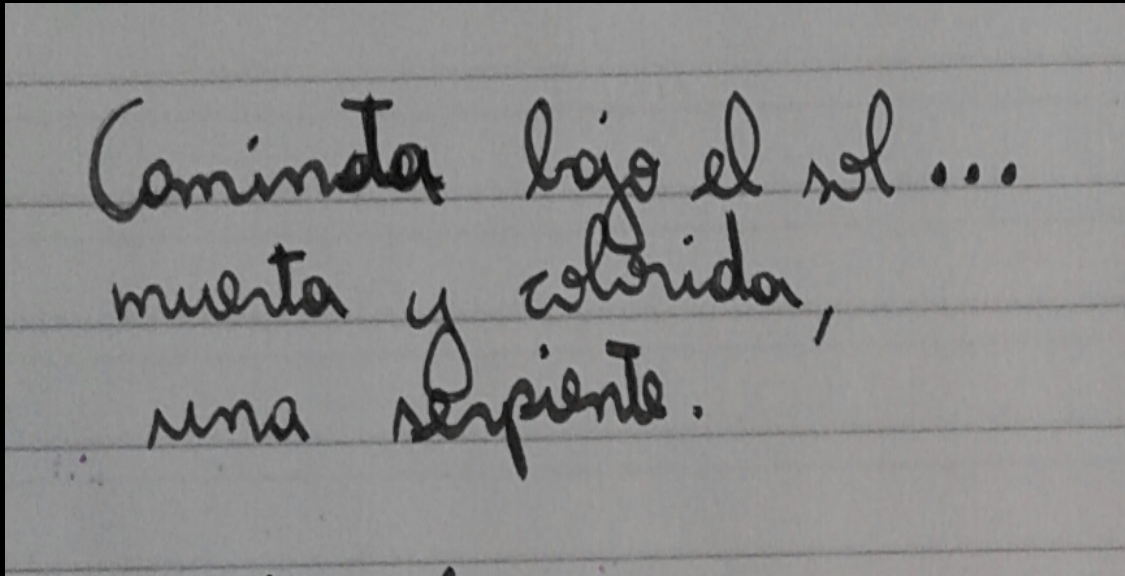 Caminata bajo el sol...
muerta y colorida,
una serpiente.